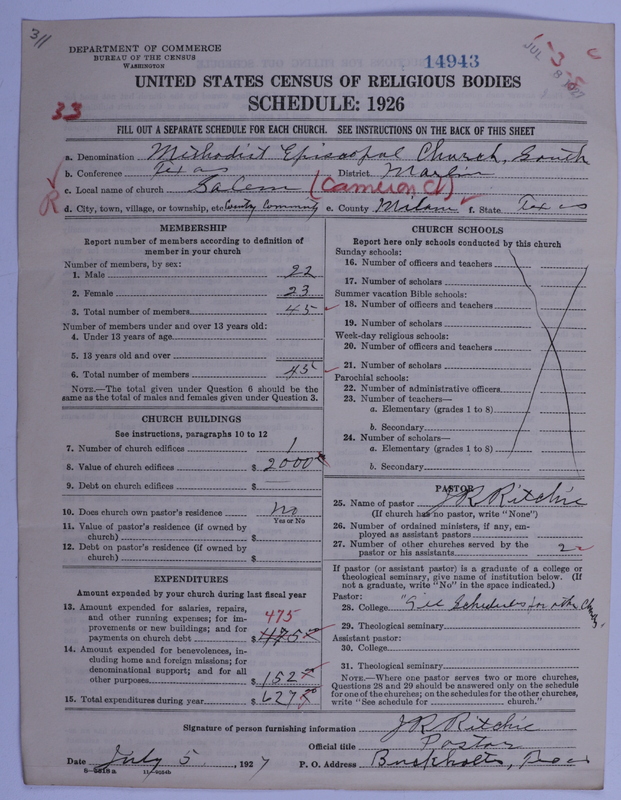 311
DEPARTMENT OF COMMERCE
BUREAU OF THE CENSUS
WASHINGTON
14943
JUL 8 1927
1-3-5 c
UNITED STATES CENSUS OF RELIGIOUS BODIES
33
SCHEDULE: 1926
FILL OUT A SEPARATE SCHEDULE FOR EACH CHURCH. SEE INSTRUCTIONS ON THE BACK OF THIS SHEET
a. Denomination Methodist Episcopal Church, South
b. Conference Texas District Marlin
c. Local name of church Salem (Cameron Ct)
R
d. City, town, village, or township, etc. Country Community e. County Milam f. State Texas
MEMBERSHIP
Report number of members according to definition of member in your church
Number of members, by sex:
1. Male 22
2. Female 23
3. Total number of members 45
Number of members under and over 13 years old:
4. Under 13 years of age
5. 13 years old and over
6. Total number of members 45
NOTE.—The total given under Question 6 should be the same as the total of males and females given under Question 3.
CHURCH BUILDINGS
See instructions, paragraphs 10 to 12
7. Number of church edifices 1
8. Value of church edifices $ 2000
9. Debt on church edifices $
10. Does church own pastor's residence no
Yes or No
11. Value of pastor's residence (if owned by church) $
12. Debt on pastor's residence (if owned by church) $
EXPENDITURES
Amount expended by your church during last fiscal year
13. Amount expended for salaries, repairs, and other running expenses; for improvements or new buildings; and for payments on church debt $ 475 475
14. Amount expended for benevolences, including home and foreign missions; for denominational support; and for all other purposes $ 152
15. Total expenditures during year $ 627
CHURCH SCHOOLS
Report here only schools conducted by this church
Sunday schools:
16. Number of officers and teachers
17. Number of scholars
Summer vacation Bible schools:
18. Number of officers and teachers
19. Number of scholars
Week-day religious schools:
20. Number of officers and teachers
21. Number of scholars
Parochial schools:
22. Number of administrative officers
23. Number of teachers—
a. Elementary (grades 1 to 8)
b. Secondary
24. Number of scholars—
a. Elementary (grades 1 to 8)
b. Secondary
PASTOR
25. Name of pastor J R Ritchie
(If church has no pastor, write "None")
26. Number of ordained ministers, if any, employed as assistant pastors
27. Number of other churches served by the pastor or his assistants 2
If pastor (or assistant pastor) is a graduate of a college or theological seminary, give name of institution below. (If not a graduate, write "No" in the space indicated.)
Pastor:
28. College "See Schedules for other Church"
29. Theological seminary
Assistant pastor:
30. College
31. Theological seminary
NOTE.—Where one pastor serves two or more churches, Questions 28 and 29 should be answered only on the schedule for one of the churches; on the schedules for the other churches, write "See schedule for ________ church."
Signature of person furnishing information J R Ritchie
Official title Pastor
Date July 5, 1927 P. O. Address Buckholts, Texas